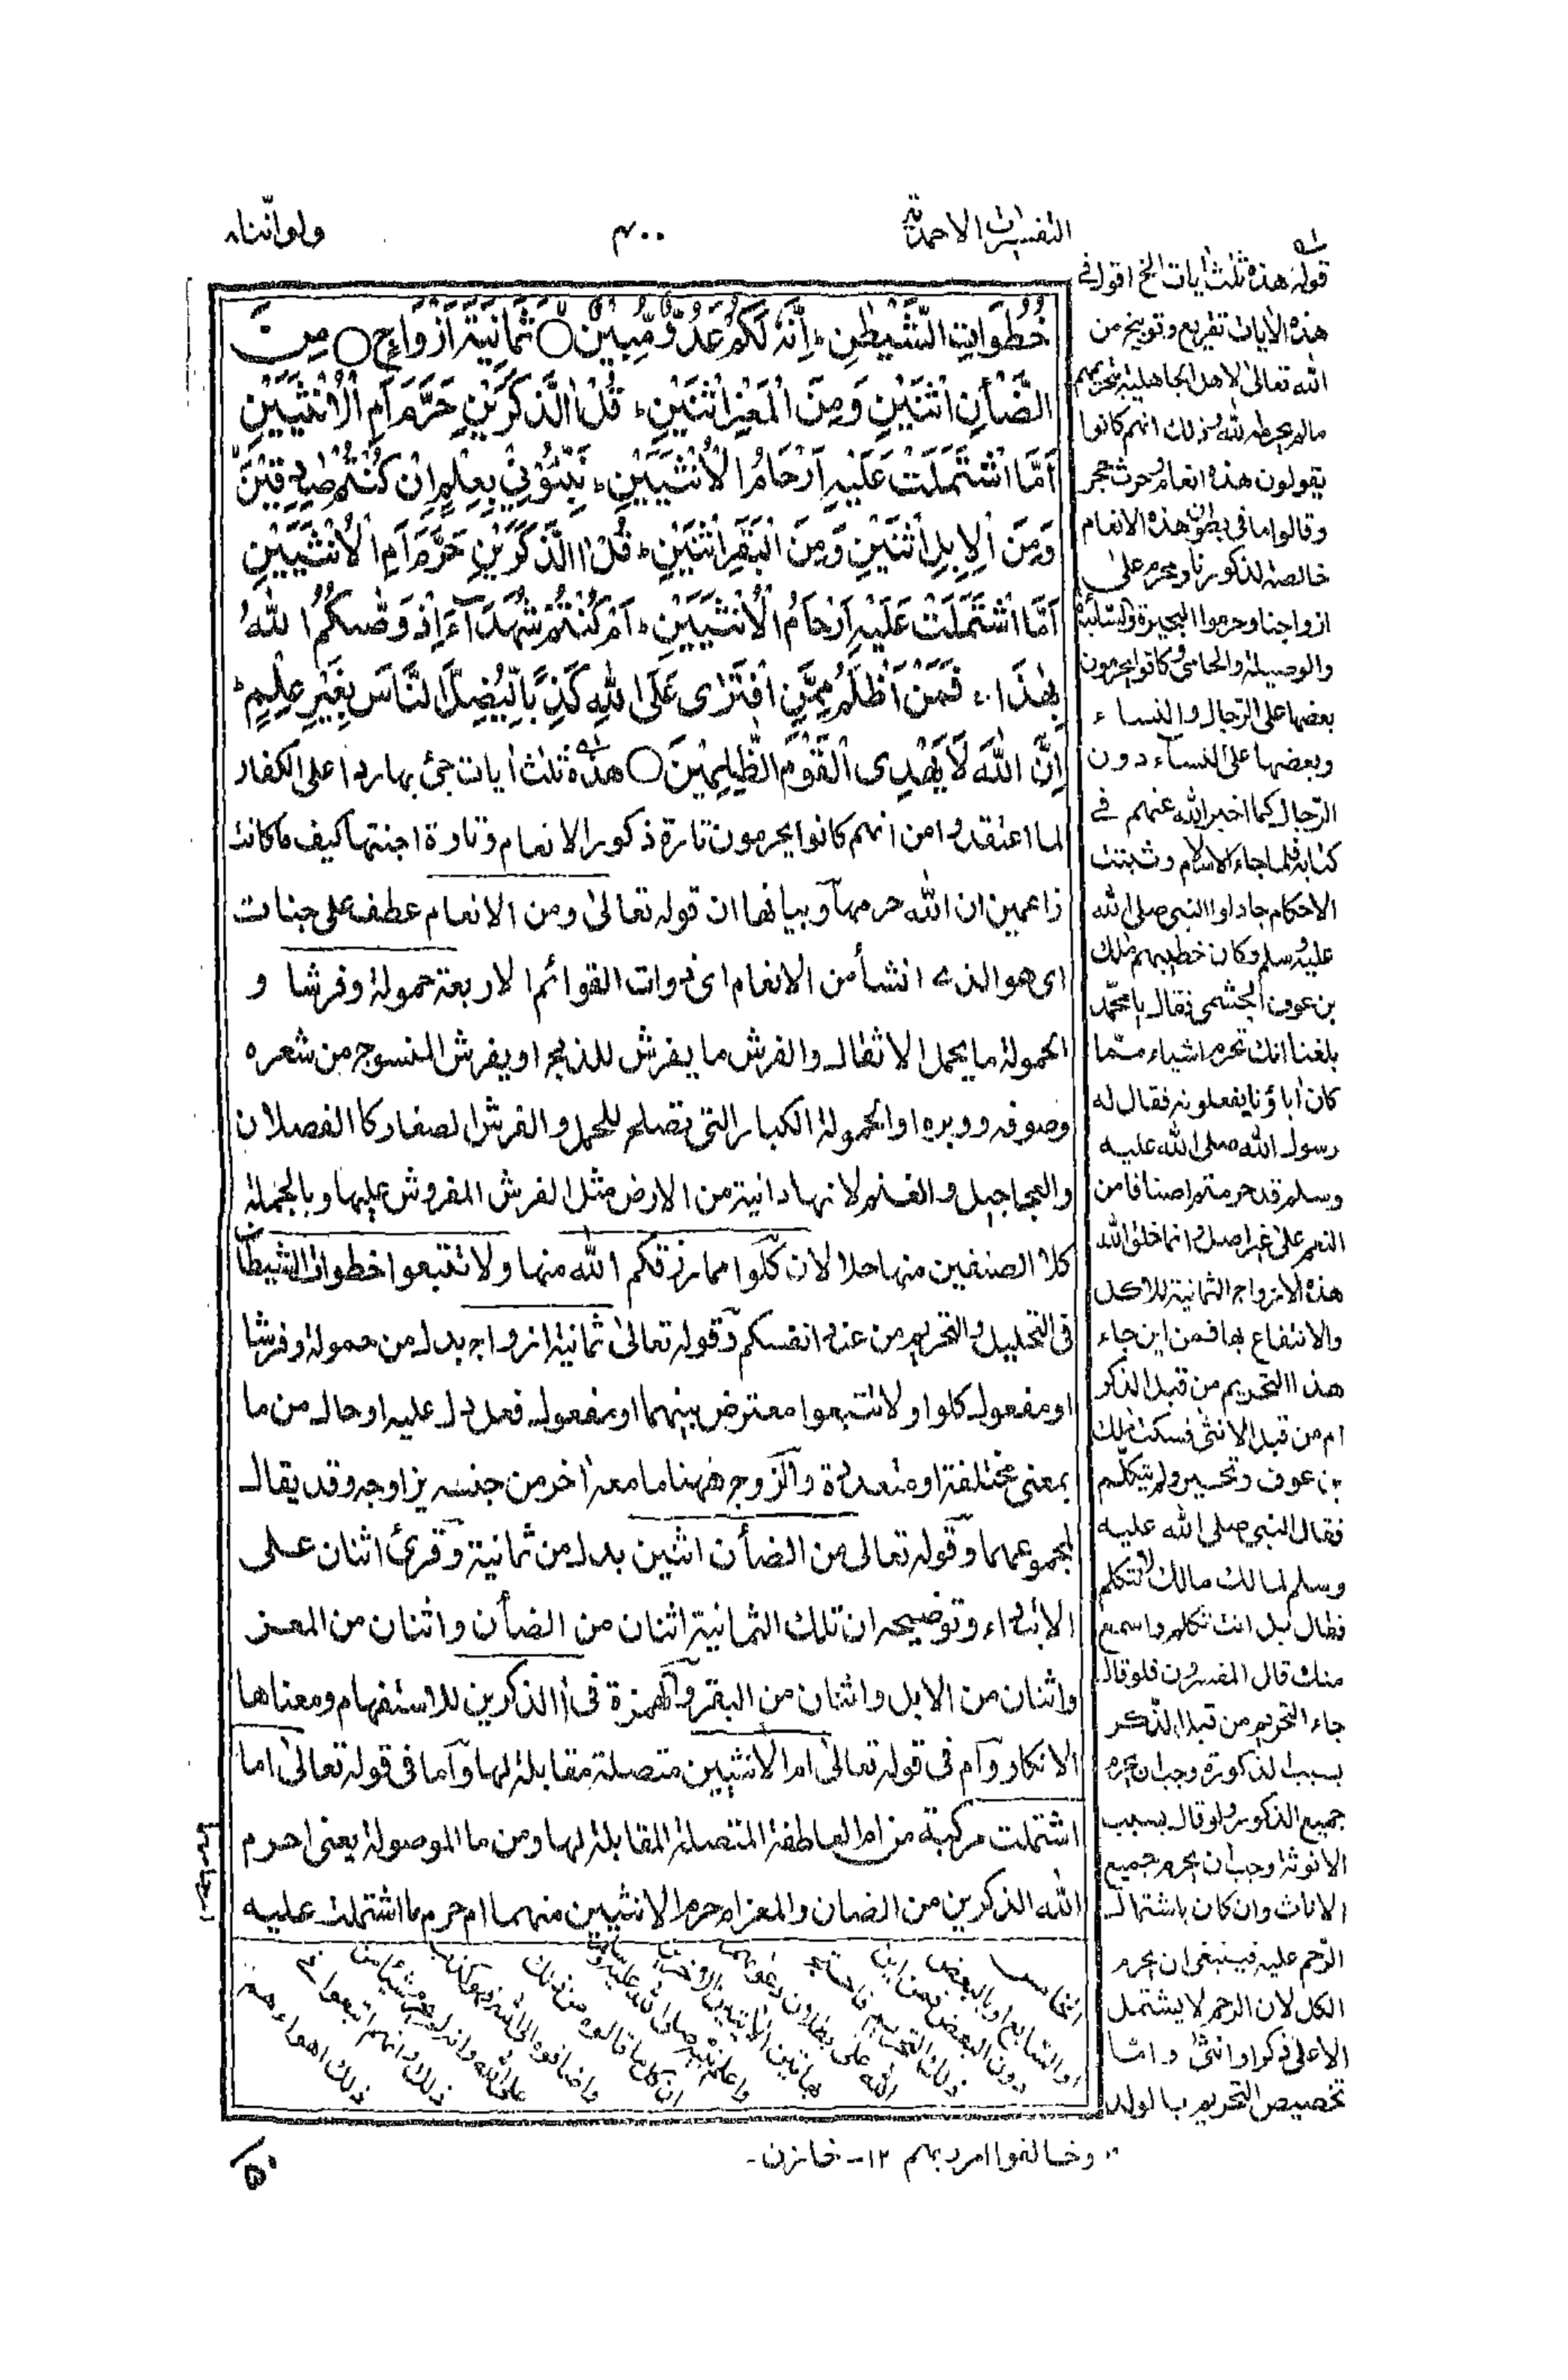 التفسيرات الاحمدية
٤٠٠
ولو اننا ٨
خُطُوَاتِ الشَّيْطٰنِ ؕ اِنَّهٗ لَكُمْ عَدُوٌّ مُّبِيْنٌ ○ ثَمٰنِيَةَ اَزْوَاجٍ ○ مِنَ
الضَّأْنِ اثْنَيْنِ وَمِنَ الْمَعْزِ اثْنَيْنِ ؕ قُلْ اٰالذَّكَرَيْنِ حَرَّمَ اَمِ الْاُنْثَيَيْنِ
اَمَّا اشْتَمَلَتْ عَلَيْهِ اَرْحَامُ الْاُنْثَيَيْنِ ؕ نَبِّئُوْنِيْ بِعِلْمٍ اِنْ كُنْتُمْ صٰدِقِيْنَ
وَمِنَ الْاِبِلِ اثْنَيْنِ وَمِنَ الْبَقَرِ اثْنَيْنِ ؕ قُلْ اٰالذَّكَرَيْنِ حَرَّمَ اَمِ الْاُنْثَيَيْنِ
اَمَّا اشْتَمَلَتْ عَلَيْهِ اَرْحَامُ الْاُنْثَيَيْنِ ؕ اَمْ كُنْتُمْ شُهَدَآءَ اِذْ وَصّٰىكُمُ اللّٰهُ
بِهٰذَا ۚ فَمَنْ اَظْلَمُ مِمَّنِ افْتَرٰى عَلَى اللّٰهِ كَذِبًا لِّيُضِلَّ النَّاسَ بِغَيْرِ عِلْمٍ ؕ
اِنَّ اللّٰهَ لَا يَهْدِى الْقَوْمَ الظّٰلِمِيْنَ ○ هذه ثلث اٰيات جئ بها ردا على الكفار
لما اعتقدوا من انهم كانوا يحرمون تارة ذكور الانعام وتارة اجنتها كيف ما كانت
زاعمين ان الله حرمها وبيانها ان قوله تعالىٰ ومن الانعام عطف على جنات
اى هو الذى انشأ من الانعام اى ذوات القوائم الاربعة حمولة وفرشا و
الحمولة ما يحمل الاثقال والفرش ما يفرش للذبح او يفرش المنسوج من شعره
وصوفه ووبره او الحمولة الكبار التى تصلح للحمل والفرش الصغار كالفصلان
والعجاجيل والغنم لانها دانية من الارض مثل الفرش المفروش عليها وبالجملة
كلا الصنفين منها حلالان كلوا مما رزقكم الله منها ولا تتبعوا خطوات الشيطان
فى التحليل والتحريم من عند انفسكم وقوله تعالىٰ ثمانية ازواج بدل من حمولة وفرشا
او مفعول كلوا ولا تتبعوا معترض بينهما او مفعول فعل دل عليه او حال من ما
بمعنى مختلفة او متعددة والزوج ههنا ما معه اٰخر من جنسه يزاوجه وقد يقال
لمجموعهما وقوله تعالى من الضأن اثنين بدل من ثمانية وقرئ اثنان على
الابتداء وتوضيحه ان تلك الثمانية اثنان من الضأن واثنان من المعز
واثنان من الابل واثنان من البقر والهمزة فى أالذكرين للاستفهام ومعناها
الانكار وآم فى قوله تعالىٰ ام الانثيين متصلة مقابلة لها وآما فى قوله تعالىٰ اما
اشتملت مركبة من ام العاطفة المتصلة المقابلة لها ومن ما الموصولة يعنى احرم
الله الذكرين من الضان والمعز ام حرم الانثيين منهما ام حرم ما اشتملت عليه
قوله هذه ثلث اٰيات الخ اقول فى
هذه الاٰيات تقريع وتوبيخ من
الله تعالىٰ لاهل الجاهلية بتحريمهم
مالم يحرمه الله وذلك انهم كانوا
يقولون هذه انعام وحرث حجر
وقالوا ما فى بطون هذه الانعام
خالصة لذكورنا ومحرم على
ازواجنا وحرموا البحيرة والسائبة
والوصيلة والحامى وكانوا يحرمون
بعضها على الرجال والنساء
وبعضها على النساء دون
الرجال كما اخبر الله عنهم فى
كتابه فلما جاء الاسلام وثبتت
الاحكام جادلوا النبى صلى الله
عليه وسلم وكان خطيبهم مٰلك
بن عوف الجشمى فقال يا محمد
بلغنا انك تحرم اشياء مما
كان اٰباؤنا يفعلونه فقال له
رسول الله صلى الله عليه
وسلم قد حرمتم اصنافا من
النعم على غير اصل وانما خلق الله
هذه الازواج الثمانية للاكل
والانتفاع بها فمن اين جاء
هذا التحريم من قبل الذكر
ام من قبل الانثى فسكت مٰلك
بن عوف وتحير ولم يتكلم
فقال النبى صلى الله عليه
وسلم لمالك مالك لا تتكلم
فقال بل انت تكلم واسمع
منك قال المفسرون فلو قال
جاء التحريم من قبل الذكر
بسبب الذكورة وجب ان يحرم
جميع الذكور ولو قال بسبب
الانوثة وجب ان يحرم جميع
الاناث وان كان باشتمال
الرحم عليه فينبغى ان يحرم
الكل لان الرحم لا يشتمل
الا على ذكر او انثىٰ واما
تخصيص التحريم بالولد
الخامس
او السابع او بالبعض
دون البعض فمن اين
ذلك التحريم فاحتج
الله على بطلان دعواهم
بهاتين الاٰيتين
واعلم نبيه صلى الله عليه وسلم
ان كل ما قالوه من ذلك
واضافوه الى الله فهو كذب
على الله وانه لم يحرم شيئا من
ذلك وانهم اتبعوا فى
ذلك اهواءهم
وخالفوا امر ربهم ١٢- خازن-